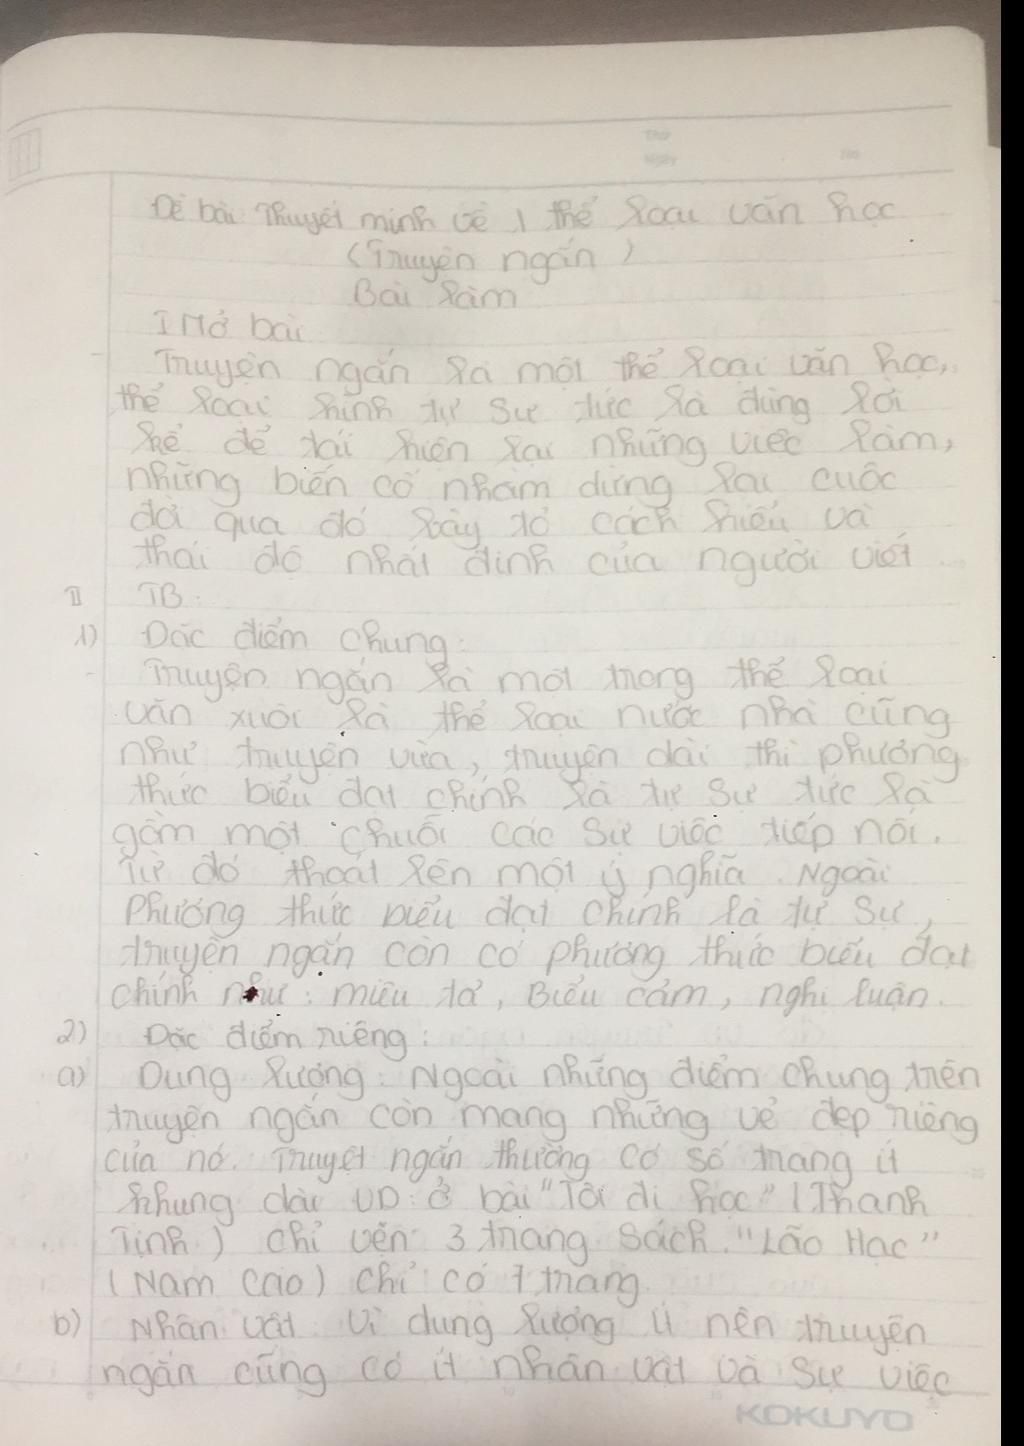 Thứ
Ngày
No
Đề bài Thuyết minh về 1 thể loại văn học
(Truyện ngắn)
Bài làm
I Mở bài
Truyện ngắn là một thể loại văn học,
thể loại hình tự sự tức là dùng lời
kể để tái hiện lại những việc làm,
những biến cố nhằm dựng lại cuộc
đời qua đó bày tỏ cách hiểu và
thái độ nhất định của người viết
II TB:
1) Đặc điểm chung:
Truyện ngắn là một trong thể loại
văn xuôi là thể loại nước nhà cũng
như truyện vừa, truyện dài thì phương
thức biểu đạt chính là tự sự tức là
gồm một chuỗi các sự việc tiếp nối.
Từ đó thoát lên một ý nghĩa. Ngoài
phương thức biểu đạt chính là tự sự,
truyện ngắn còn có phương thức biểu đạt
chính như: miêu tả, Biểu cảm, nghị luận.
2) Đặc điểm riêng:
a) Dung lượng: Ngoài những điểm chung trên
truyện ngắn còn mang những vẻ đẹp riêng
của nó. Truyệt ngắn thường có số trang ít
khung dài VD: ở bài "Tôi đi học" (Thanh
Tịnh) chỉ vẻn 3 trang sách. "Lão Hạc"
(Nam Cao) chỉ có 7 trang.
b) Nhân vật: Vì dung lượng ít nên truyện
ngắn cũng có ít nhân vật và sự việc
KOKUYO